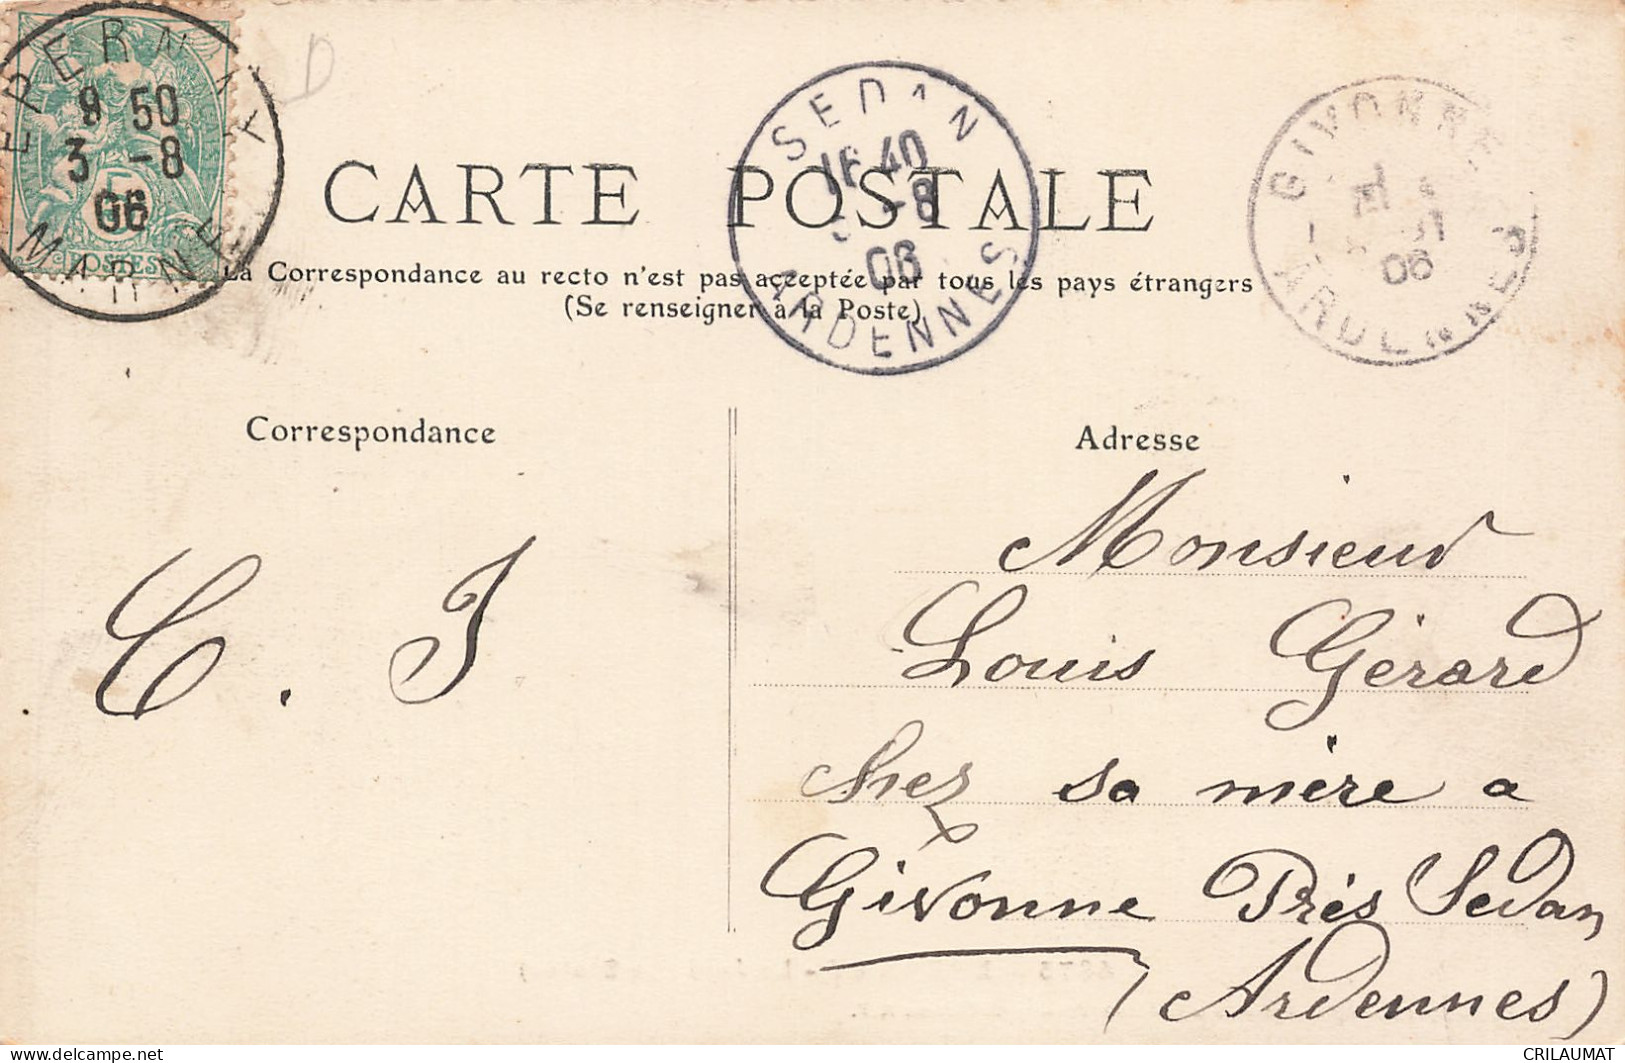 EPERNAY
9 50
3 -8
06
MARNE
POSTES
SEDAN
16 40
-8
06
ARDENNES
GIVONNE
06
ARDENNES
D
CARTE POSTALE
La Correspondance au recto n'est pas acceptée par tous les pays étrangers
(Se renseigner à la Poste)
Correspondance
Adresse
C. J
Monsieur
Louis Gérard
chez sa mère a
Givonne Près Sedan
(Ardennes)
CRILAUMAT